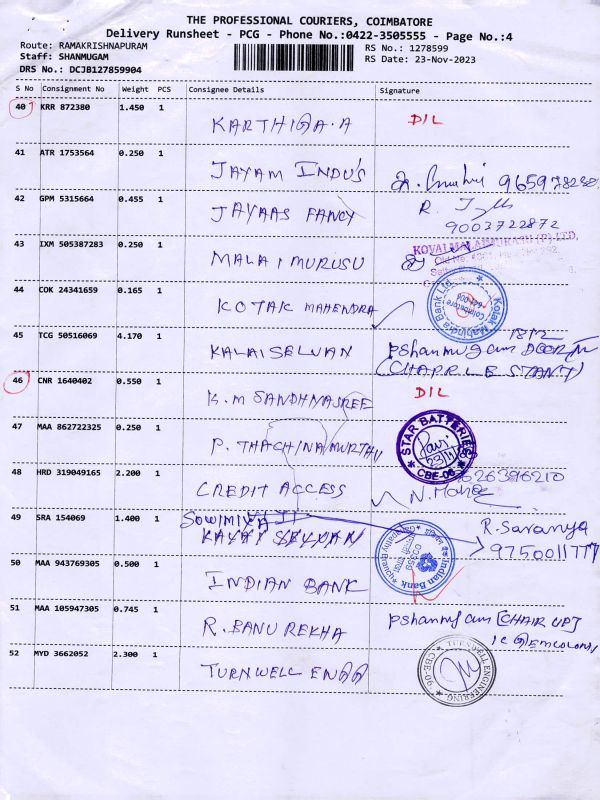 THE PROFESSIONAL COURIERS, COIMBATORE
Delivery Runsheet - PCG - Phone No.:0422-3505555 - Page No.:4
Route: RAMAKRISHNAPURAM RS No.: 1278599
Staff: SHANMUGAM RS Date: 23-Nov-2023
DRS No.: DCJB127859904
S No Consignment No Weight PCS Consignee Details Signature
40 KRR 872380 1.450 1
KARTHIGA.A DIL
41 ATR 1753564 0.250 1
JAYAM INDU'S
42 GPM 5315664 0.455 1
JAYAAS FANCY R.
9003722872
43 IXM 505387283 0.250 1
MALAI MURUSU
44 COK 24341659 0.165 1
KOTAK MAHENDRA Kotak Mahindra Bank Ltd. Coimbatore
45 TCG 50516069 4.170 1
KALAISELVAN pshanmugam DOOR IN
46 CNR 1640402 0.550 1
K.M SANDHNASREE DIL
47 MAA 862722325 0.250 1
P. THACHINAMURTHY STAR BATTERIES CBE-06
48 HRD 319049165 2.200 1
CREDIT ACCESS N.
49 SRA 154069 1.400 1
R. Saranya
9750011777
50 MAA 943769305 0.500 1
INDIAN BANK Indian Bank
51 MAA 105947305 0.745 1
R. BANU REKHA [CHAIR UP]
52 MYD 3662052 2.300 1
TURNWELL ENGG TURNWELL ENGINEERING CBE-06